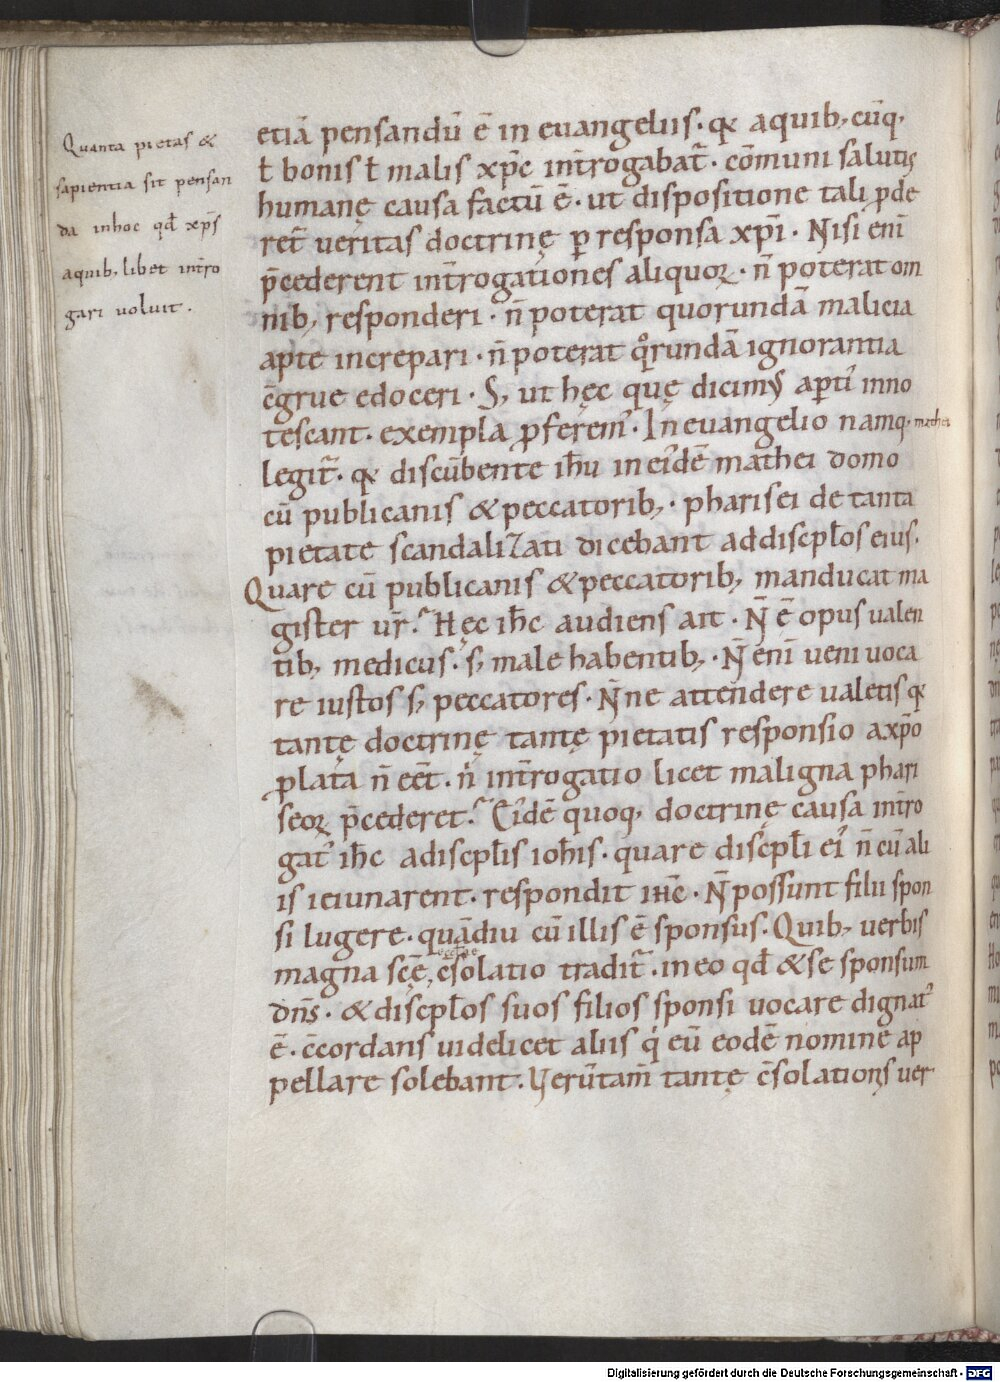 Quanta pietas &
sapientia sit pensan
da inhoc qđ xp̄s
aquib; libet intro
gari uoluit.
etiā pensandū ē in euangeliis. qđ aquib; cūq;
ł bonis ł malis xp̄c int̄rogabat̄. cōmuni salutis
humanę causa factū ē. ut dispositione tali ꝓde
ret ueritas doctrinę ꝑ responsa xp̄i. Nisi eni
p̄cederent int̄rogationes aliquoꝝ. n̄ poterat om
nib; responderi. n̄ poterat quorundā malicia
apte increpari. n̄ poterat qͦrundā ignorantia
c̄grue edoceri. S; ut hęc quę dicimꝰ aꝑti inno
tescant. exempla ꝓferem᾽. In euangelio namq; mathei
legit̄. qđ discūbente ih̄u in ei᾽dē mathei domo
cū publicanis & peccatorib;. pharisei de tanta
pietate scandalizati dicebant addiscipłos eius.
Quare cū publicanis & peccatorib; manducat ma
gister ur̄? Hęc ih̄c audiens ait. N̄ ē opus ualen
tib; medicus. s; male habentib;. N̄ eni ueni uoca
re iustos s; peccatores. N̄ne attendere ualetis qđ
tantę doctrinę tantę pietatis responsio axp̄o
ꝓlata n̄ eēt. n᾽ int̄rogatio licet maligna phari
seoꝝ p̄cederet? Ei᾽dē quoq; doctrinę causa int̄ro
gat᾽ ih̄c adiscipłis ioh̄is. quare discipłi ei᾽ n̄ cū ali
is ieiunarent. respondit ih̄c. N̄ possunt filii spon
si lugere. quādiu cū illis ē sponsus. Quib; uerbis
magna sc̄ę ęcclię c̄solatio tradit̄. in eo qđ & se sponsum
dn̄s. & discipłos suos filios sponsi uocare dignat᾽
ē. c̄cordans uidelicet aliis qͥ eū eodē nomine ap
pellare solebant. Uerūtam̄ tantę c̄solationis uer